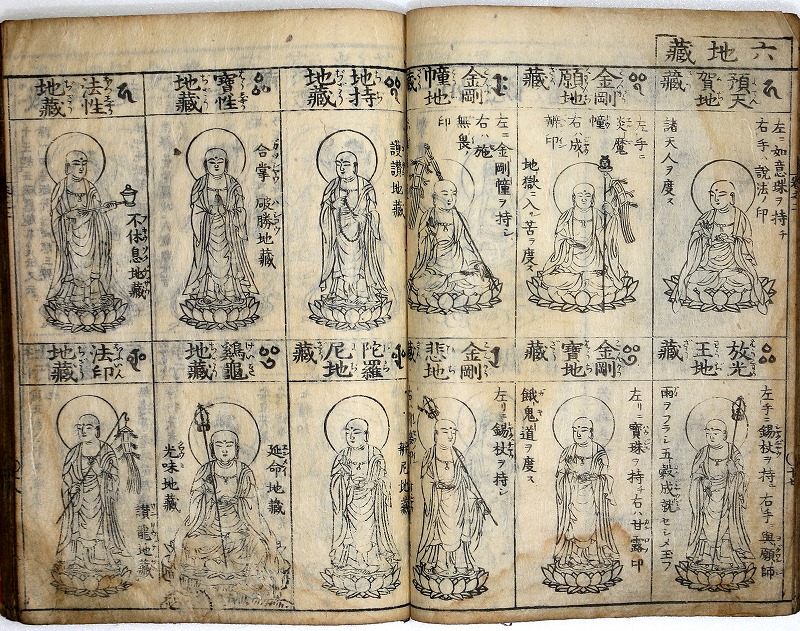 六地藏
預天
賀地
藏
左ニ如意珠ヲ持チ
右手ハ說法ノ印
諸天人ヲ度ス
金剛
願地
藏
左手ニ
炎魔
幢
右ハ成
辨印
地獄ニ入苦ヲ度ス
金剛
幢地
藏
左ニ金剛幢ヲ持シ
右ハ施
無畏ノ
印
放光
王地
藏
左手ニ錫杖ヲ持右手ニ與願師
雨ヲフラシ五穀成就セシメ玉フ
金剛
寶地
藏
左リニ寶珠ヲ持チ右ハ甘露印
餓鬼道ヲ度ス
金剛
悲地
藏
左リニ錫杖ヲ持シ
地持
地藏
護讚地藏
寶性
地藏
合掌
破勝地藏
法性
地藏
不休息地藏
陀羅
尼地
藏
辨尼地藏
地藏
延命地藏
光味地藏
法印
地藏
讃龍地藏